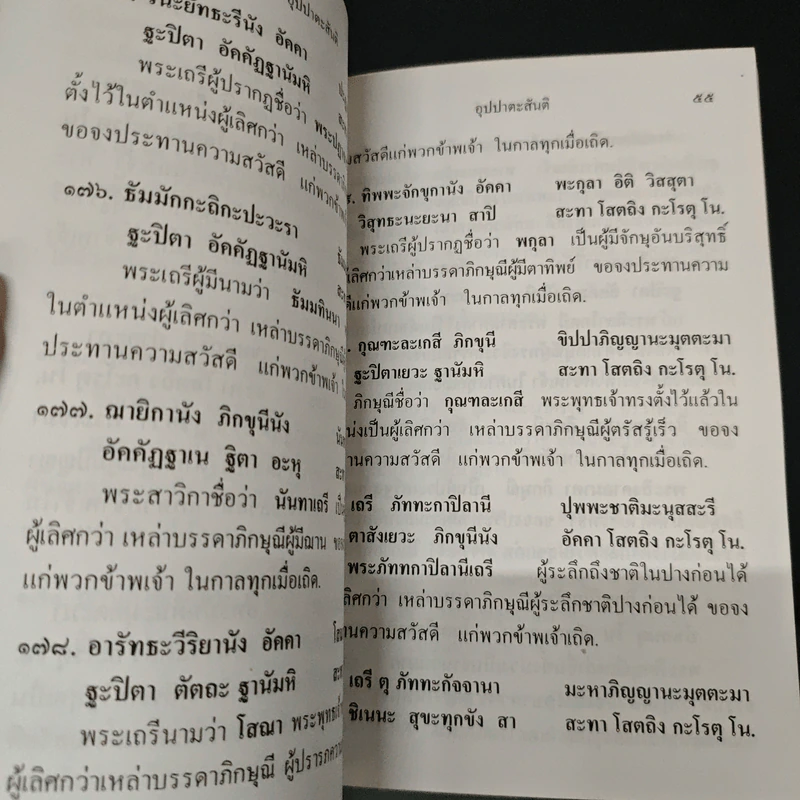 อุปปาตะสันติ
วินะยัทธะรีนัง อัคคา
ฐะปิตา อัคคัฏฐานัมหิ
พระเถรีผู้ปรากฏชื่อว่า
ตั้งไว้ในตำแหน่งผู้เลิศกว่า เหล่าบรรดา
ขอจงประทานความสวัสดี แก่พวกข้าพเจ้า
๑๗๖. ธัมมักกะถิกะปะวะรา
ฐะปิตา อัคคัฏฐานัมหิ
พระเถรีผู้มีนามว่า ธัมมทินนา
ในตำแหน่งผู้เลิศกว่า เหล่าบรรดาภิกษุณี
ประทานความสวัสดี แก่พวกข้าพเจ้า
๑๗๗. ฌายิกานัง ภิกขุนีนัง
อัคคัฏฐาเน ฐิตา อะหุ
พระสาวิกาชื่อว่า นันทาเถรี
ผู้เลิศกว่า เหล่าบรรดาภิกษุณีผู้มีฌาน
แก่พวกข้าพเจ้า ในกาลทุกเมื่อเถิด.
๑๗๘. อารัทธะวีริยานัง อัคคา
ฐะปิตา ตัตถะ ฐานัมหิ
พระเถรีนามว่า โสณา
ผู้เลิศกว่าเหล่าบรรดาภิกษุณี ผู้ปรารภความ
อุปปาตะสันติ ๕๕
สวัสดีแก่พวกข้าพเจ้า ในกาลทุกเมื่อเถิด.
ทิพพะจักขุกานัง อัคคา พะกุลา อิติ วิสสุตา
วิสุทธะนะยะนา สาปิ สะทา โสตถิง กะโรตุ โน.
พระเถรีผู้ปรากฏชื่อว่า พกุลา เป็นผู้มีจักษุอันบริสุทธิ์
ผู้เลิศกว่าเหล่าบรรดาภิกษุณีผู้มีตาทิพย์ ขอจงประทานความ
ดีแก่พวกข้าพเจ้า ในกาลทุกเมื่อเถิด.
กุณฑะละเกสี ภิกขุนี ขิปปาภิญญานะมุตตะมา
ฐะปิตาเยวะ ฐานัมหิ สะทา โสตถิง กะโรตุ โน.
ภิกษุณีชื่อว่า กุณฑละเกสี พระพุทธเจ้าทรงตั้งไว้แล้วใน
น่งเป็นผู้เลิศกว่า เหล่าบรรดาภิกษุณีผู้ตรัสรู้เร็ว ขอจง
านความสวัสดี แก่พวกข้าพเจ้า ในกาลทุกเมื่อเถิด.
เถรี ภัททะกาปิลานี ปุพพะชาติมะนุสสะรี
ตาสังเยวะ ภิกขุนีนัง อัคคา โสตถิง กะโรตุ โน.
พระภัททกาปิลานีเถรี ผู้ระลึกถึงชาติในปางก่อนได้
เลิศกว่า เหล่าบรรดาภิกษุณีผู้ระลึกชาติปางก่อนได้ ขอจง
านความสวัสดี แก่พวกข้าพเจ้าเถิด.
เถรี ตุ ภัททะกัจจานา มะหาภิญญานะมุตตะมา
ชิเนนะ สุขะทุกขัง สา สะทา โสตถิง กะโรตุ โน.